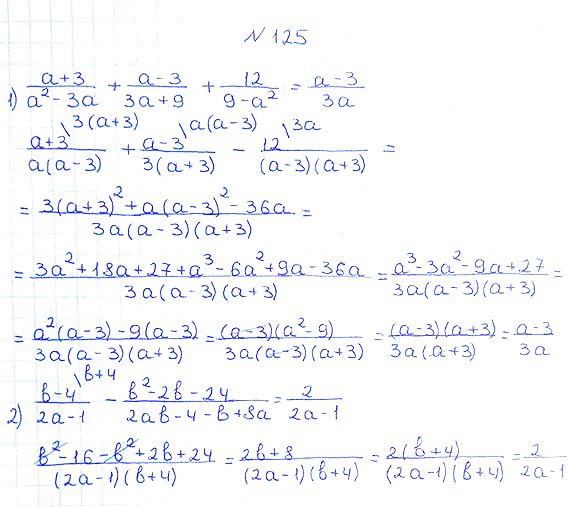 N 125
1) (a+3)/(a²-3a) + (a-3)/(3a+9) + 12/(9-a²) = (a-3)/(3a)
(a+3)/(a(a-3)) \3(a+3) + (a-3)/(3(a+3)) \a(a-3) - 12/((a-3)(a+3)) \3a =
= (3(a+3)²+a(a-3)²-36a)/(3a(a-3)(a+3)) =
= (3a²+18a+27+a³-6a²+9a-36a)/(3a(a-3)(a+3)) = (a³-3a²-9a+27)/(3a(a-3)(a+3)) =
= (a²(a-3)-9(a-3))/(3a(a-3)(a+3)) = ((a-3)(a²-9))/(3a(a-3)(a+3)) = ((a-3)(a+3))/(3a(a+3)) = (a-3)/(3a)
2) (в-4)/(2a-1) \в+4 - (в²-2в-24)/(2aв-4-в+8a) = 2/(2a-1)
(в²-16-в²+2в+24)/((2a-1)(в+4)) = (2в+8)/((2a-1)(в+4)) = (2(в+4))/((2a-1)(в+4)) = 2/(2a-1)